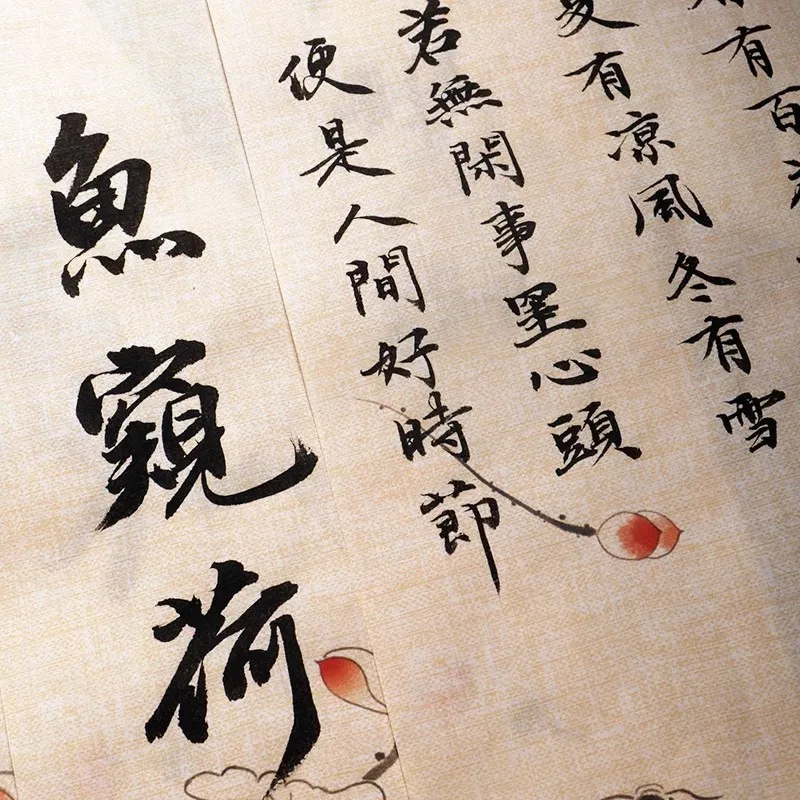 有百
夏有凉風冬有雪
若無閑事罣心頭
便是人間好時節
魚窺荷